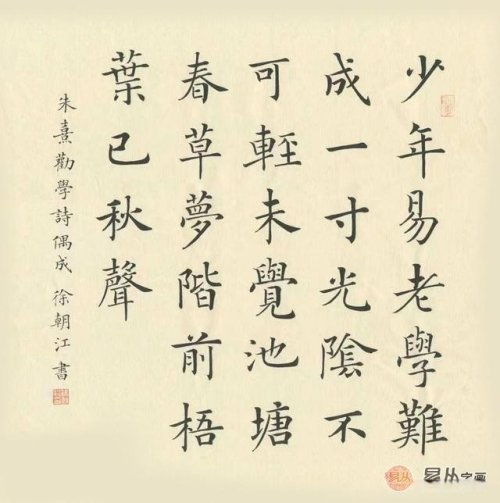 少年易老學難
成一寸光陰不
可輕未覺池塘
春草夢階前梧
葉已秋聲
朱熹勸學詩偶成 徐朝江書
易从字画